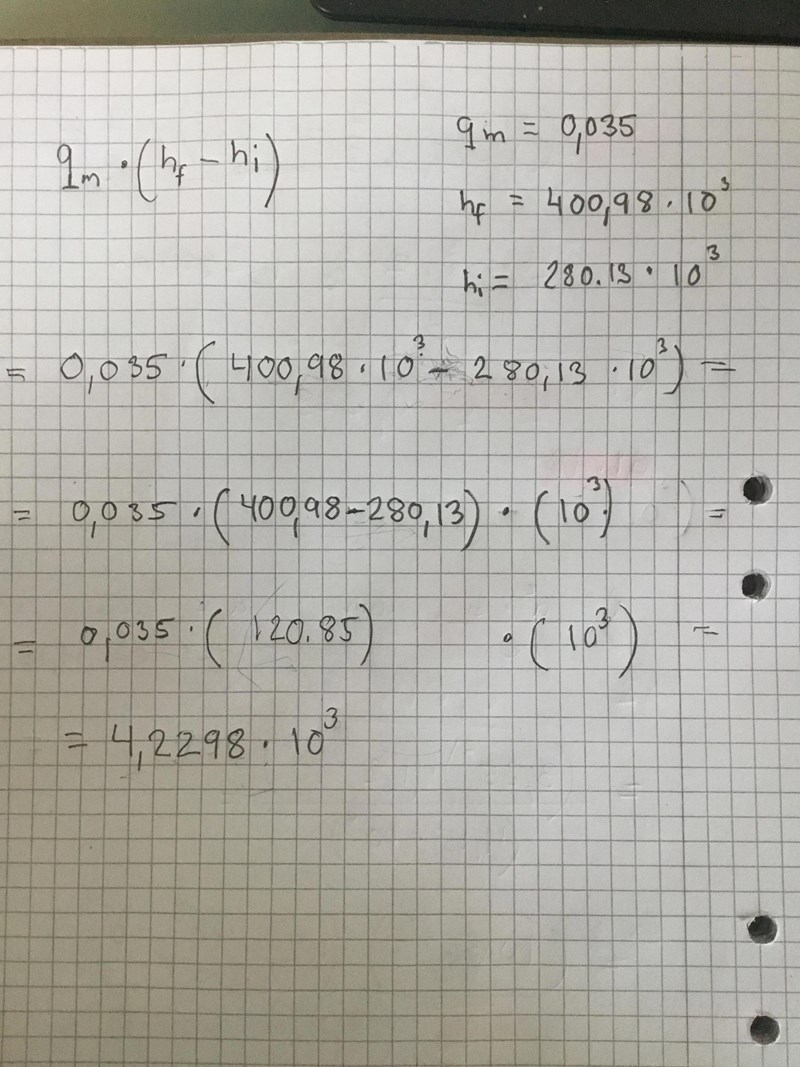 qₘ · (h_f − hᵢ)
qₘ = 0,035
h_f = 400,98 · 10³
hᵢ = 280.13 · 10³
= 0,035 · (400,98 · 10³ − 280,13 · 10³) =
= 0,035 · (400,98−280,13) · (10³) =
= 0,035 · (120.85) · (10³) =
= 4,2298 · 10³